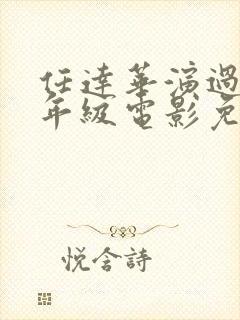 任達華演過
年級電影免
悅含詩